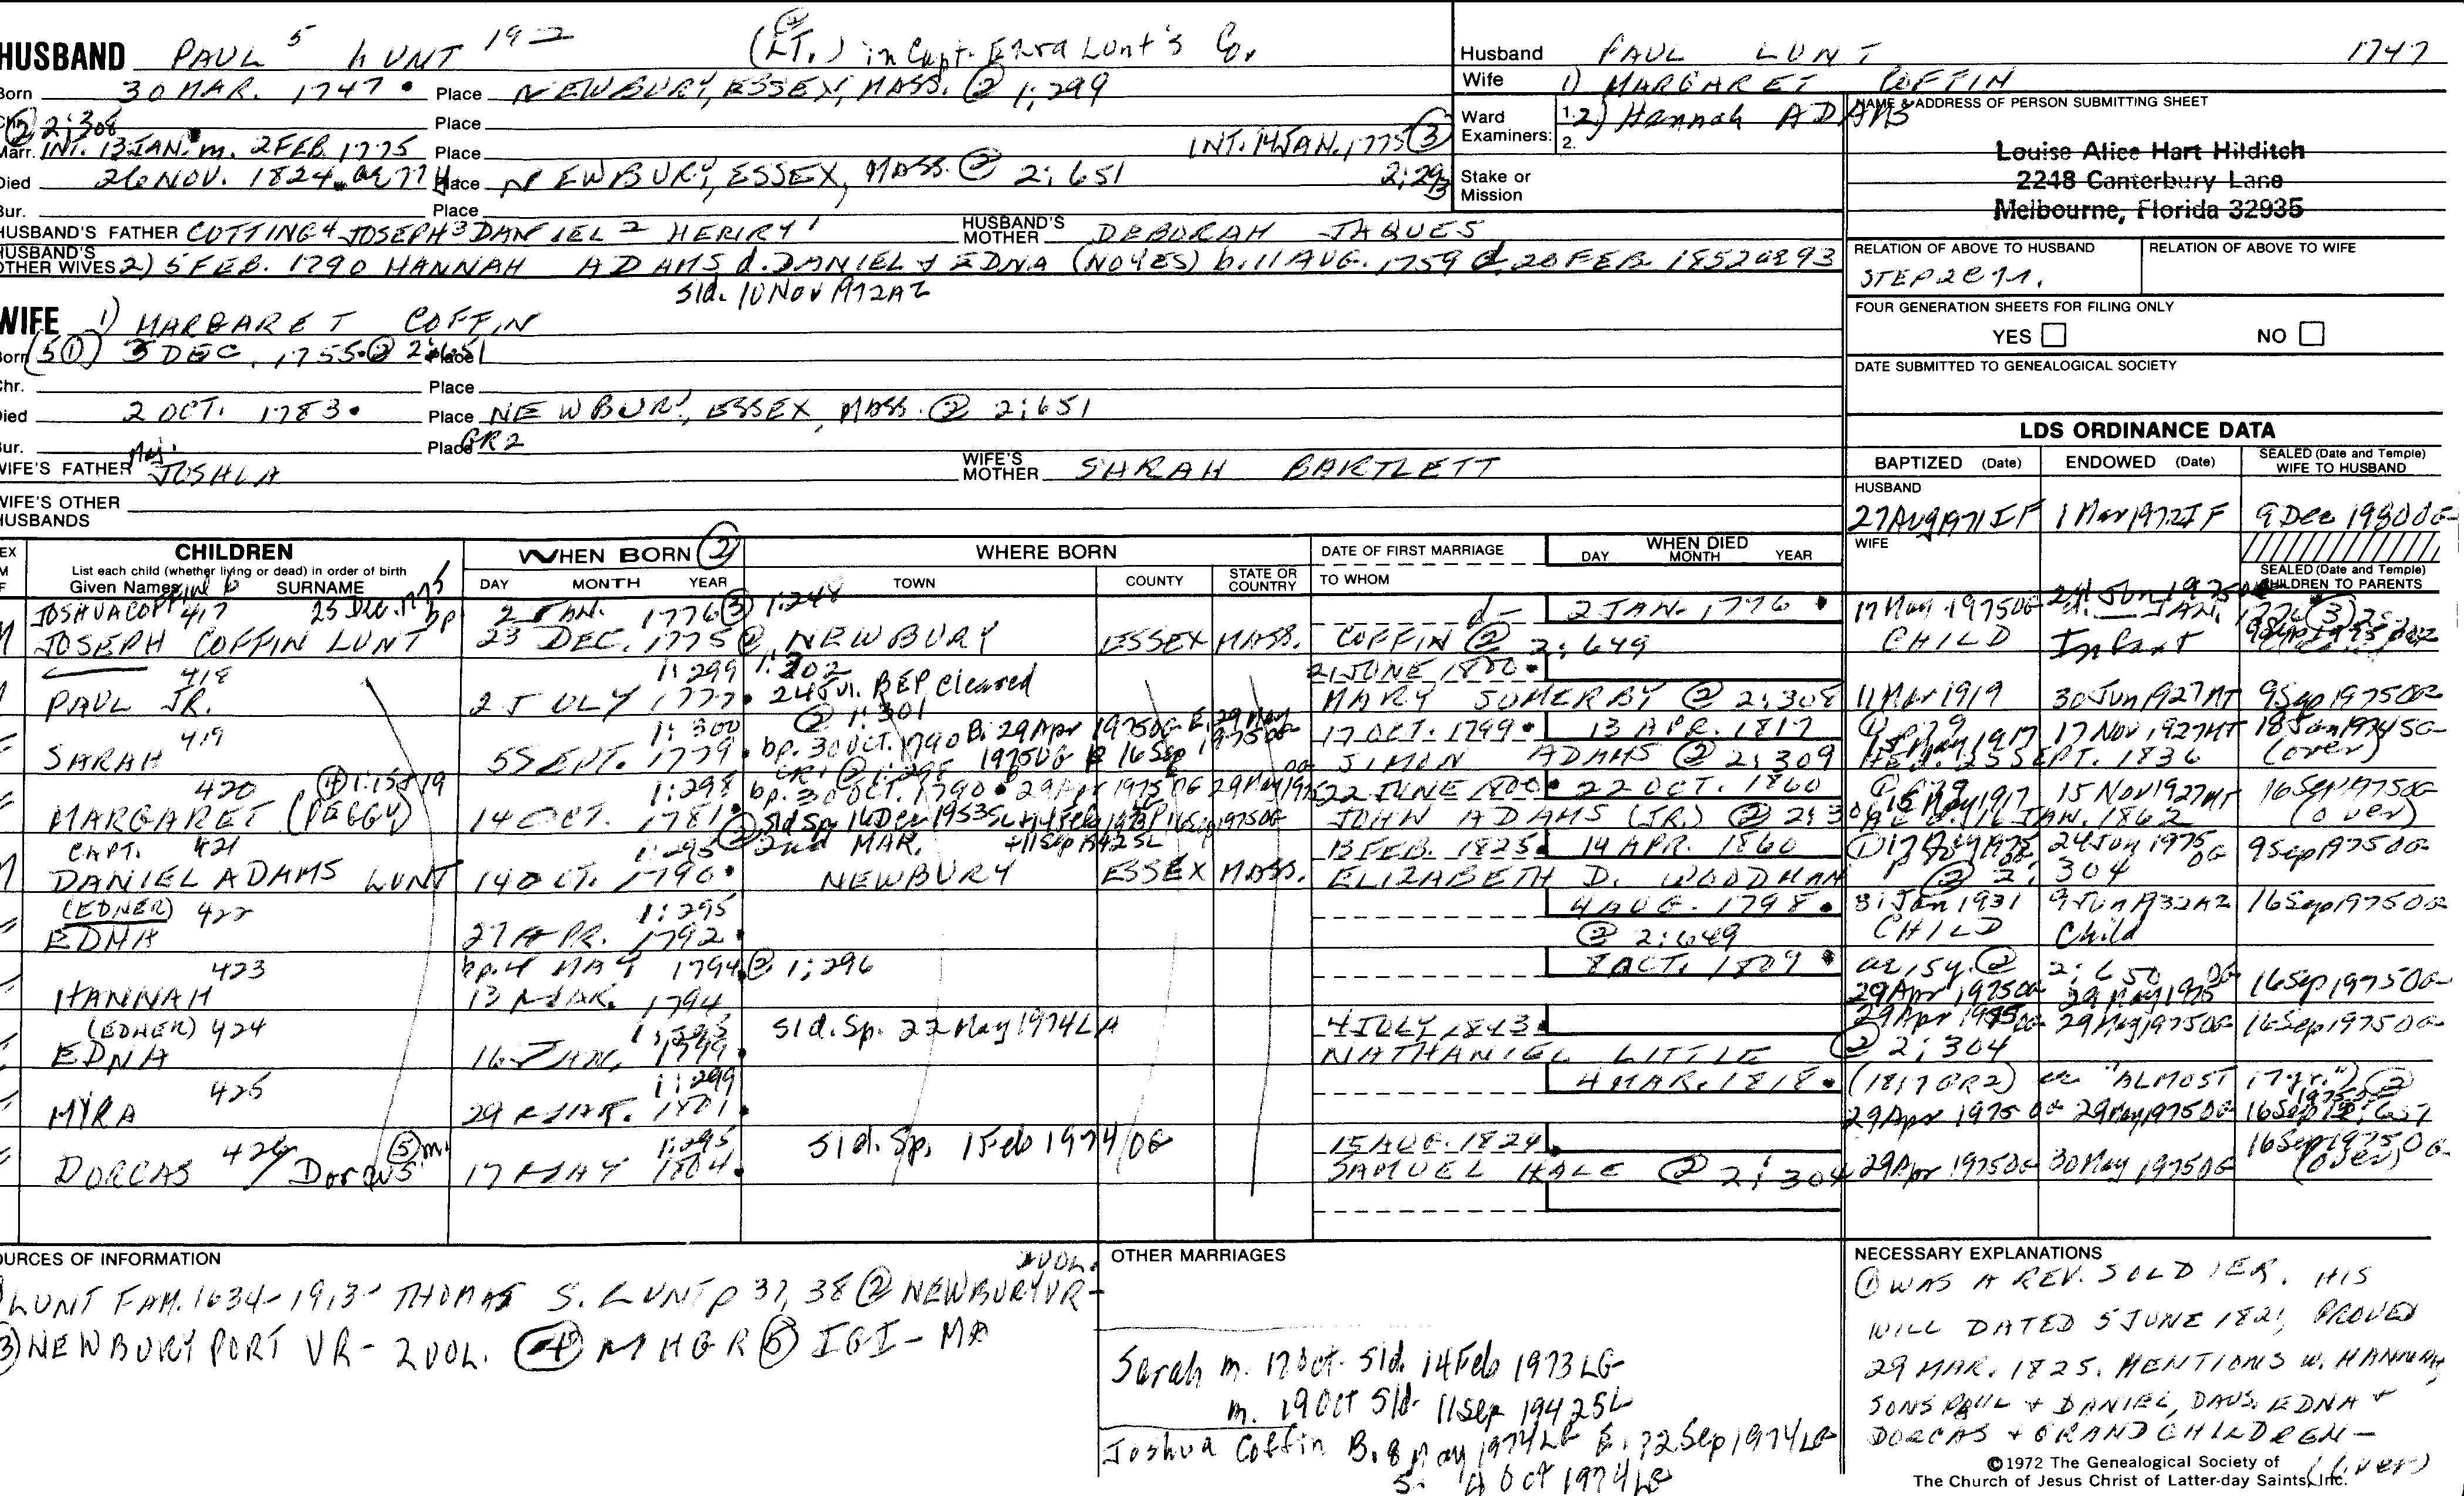 HUSBAND PAUL 5 LUNT 192 (LT.) in Capt. Ezra Lunt's Co.
Born 30 MAR. 1747 Place NEWBURY, ESSEX, MASS. ② 1:299
Chr. ② 2:308 Place
Marr. INT. 13 JAN. m. 2 FEB. 1775 Place INT. 14 JAN. 1775 ③
Died 26 NOV. 1824 Place NEWBURY, ESSEX, MASS. ② 2:651 2:293
Bur. Place
HUSBAND'S FATHER CUTTING 4 JOSEPH 3 DANIEL 2 HENRY 1 HUSBAND'S MOTHER DEBORAH JAQUES
HUSBAND'S OTHER WIVES 2) 5 FEB. 1790 HANNAH ADAMS d. DANIEL & EDNA (NOYES) b. 11 AUG. 1759 d. 20 FEB. 1852 ae 93
Sld. 10 Nov 1972 AZ
WIFE 1) MARGARET COFFIN
Born (5①) 3 DEC. 1755 ② 2:651 Place
Chr. Place
Died 2 OCT. 1783 Place NEWBURY, ESSEX, MASS. ② 2:651
Bur. Place GR2
WIFE'S FATHER Maj. JOSHUA WIFE'S MOTHER SARAH BARTLETT
WIFE'S OTHER HUSBANDS
Husband PAUL LUNT 1747
Wife 1) MARGARET COFFIN
Ward Examiners: 1. 2) Hannah ADAMS
2.
Stake or Mission
NAME & ADDRESS OF PERSON SUBMITTING SHEET
Louise Alice Hart Hilditch
2248 Canterbury Lane
Melbourne, Florida 32935
RELATION OF ABOVE TO HUSBAND RELATION OF ABOVE TO WIFE
FOUR GENERATION SHEETS FOR FILING ONLY
YES NO
DATE SUBMITTED TO GENEALOGICAL SOCIETY
LDS ORDINANCE DATA
BAPTIZED (Date) ENDOWED (Date) SEALED (Date and Temple) WIFE TO HUSBAND
HUSBAND
27 Aug 1971 IF 1 Mar 1972 IF 9 Dec 1980 OG
WIFE
SEALED (Date and Temple) CHILDREN TO PARENTS
SEX M F CHILDREN WHEN BORN ② WHERE BORN DATE OF FIRST MARRIAGE WHEN DIED
List each child (whether living or dead) in order of birth
Given Names SURNAME DAY MONTH YEAR TOWN COUNTY STATE OR COUNTRY TO WHOM DAY MONTH YEAR
417 25 Dec. 1775 bp 2 JAN. 1776 ③ 1:248 d- 2 JAN. 1776 17 May 1975 OG 24 Jun 1975
M JOSEPH COFFIN LUNT 23 DEC. 1775 ② NEWBURY ESSEX MASS. COFFIN ② 2:649 CHILD Infant
418 1:299 1:302 21 JUNE 1800
M PAUL JR. 2 JULY 1777 24 Jul. REP cleared MARY SOMERBY ② 2:308 11 Mar 1919 30 Jun 1927 MT 9 Sep 1975 OG
419 1:300 ② 1:301 bp. 30 OCT. 1790 B. 29 Apr 1975 OG E. 29 May 1975 OG 17 OCT. 1799 13 APR. 1817 17 Nov 1927 MT 18 Jan 1974 SG
F SARAH 5 SEPT. 1779 16 Sep SIMON ADAMS ② 2:309 25 SEPT. 1836 (over)
420 ④ 1:298 bp. 30 OCT. 1790 29 Apr 1975 OG 29 May 1975 22 JUNE 1800 22 OCT. 1860 15 May 1917 15 Nov 1927 MT 16 Sep 1975 OG
F MARGARET (PEGGY) 14 OCT. 1781 Sld Sp 16 Dec 1953 SL JOHN ADAMS (JR.) ② 16 JAN. 1862 (over)
CAPT. 421 1:295 2nd MAR. + 11 Sep 1942 SL 13 FEB. 1825 14 APR. 1860 24 Jun 1975 OG 9 Sep 1975 OG
M DANIEL ADAMS LUNT 14 OCT. 1790 NEWBURY ESSEX MASS. ELIZABETH D. WOODMAN ② 2:304
(EDNER) 422 1:295 4 AUG. 1798 31 Jan 1931 9 Jun 1932 AZ 16 Sep 1975 OG
F EDNA 27 APR. 1792 ② 2:649 CHILD Child
423 bp. 4 MAY 1794 ② 1:296 8 OCT. 1809 ae 15y. ② 2:650
F HANNAH 13 MAR. 1794 29 Apr 1975 OG 29 May 1975 OG 16 Sep 1975 OG
(EDNER) 424 1:295 Sld. Sp. 22 May 1974 LA 4 JULY 1843 29 Apr 1975 OG 29 May 1975 OG 16 Sep 1975 OG
F EDNA 16 JAN. 1799 NATHANIEL LITTLE ② 2:304
425 1:299 4 MAR. 1818 (1817 GR2) ae "ALMOST 17 yr.") ②
F MYRA 29 MAR. 1801 29 Apr 1975 OG 29 May 1975 OG 16 Sep 1975 OG 2:651
426 ⑤ m. 1:295 Sld. Sp. 1 Feb 1974 OG 15 AUG. 1824 16 Sep 1975 OG
F DORCAS / Dorcus 17 MAY 1804 SAMUEL HALE ② 2:304 29 Apr 1975 OG 30 May 1975 OG (over)
SOURCES OF INFORMATION
① LUNT FAM. 1634-1913 THOMAS S. LUNT p 37, 38 ② NEWBURY VR - 2 VOL.
③ NEWBURYPORT VR - 2 VOL. ④ NHGR ⑤ IGI - MA
OTHER MARRIAGES
Sarah m. 17 Oct- Sld. 14 Feb 1973 LG
m. 19 Oct Sld- 11 Sep 1942 SL
Joshua Coffin B. 8 May 1974 LG E. 22 Sep 1974 LG
S. 4 Oct 1974 LG
NECESSARY EXPLANATIONS
① WAS A REV. SOLDIER. HIS
WILL DATED 5 JUNE 1821, PROVED
29 MAR. 1825. MENTIONS W. HANNAH,
SONS PAUL & DANIEL, DAUS. EDNA &
DORCAS & GRANDCHILDREN -
(over)
©1972 The Genealogical Society of
The Church of Jesus Christ of Latter-day Saints, Inc.